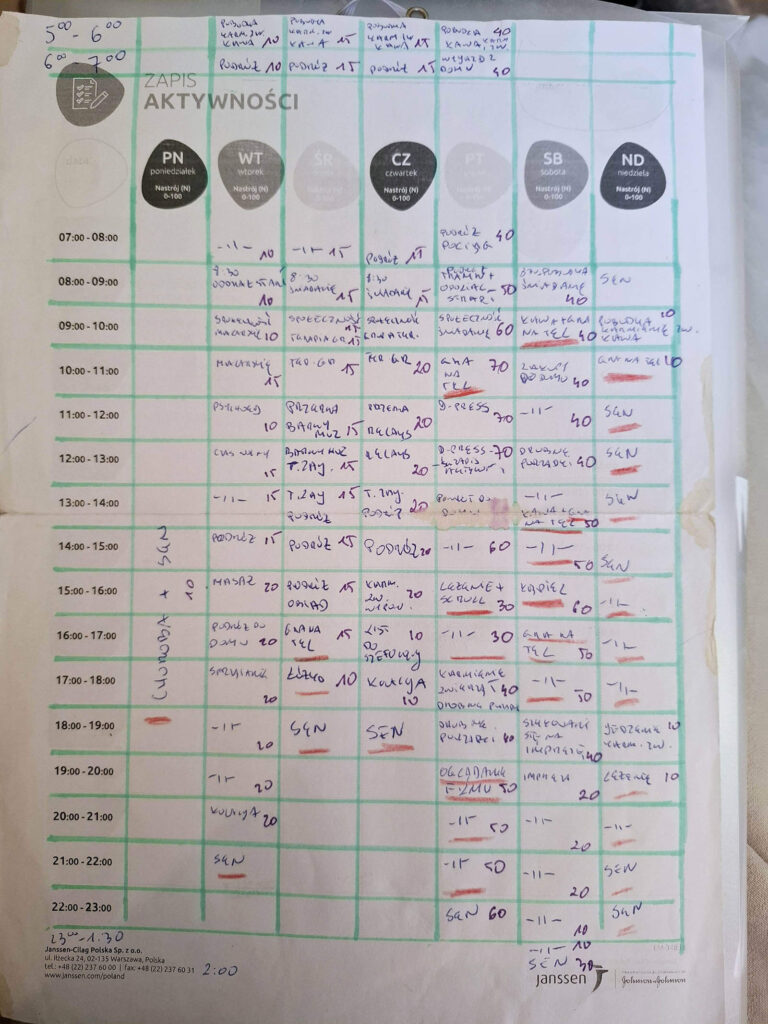 5⁰⁰ - 6⁰⁰
POBUDKA KARM. ZW. KAWA 10
POBUDKA KARM. ZW. KAWA 15
POBUDKA KARM. ZW KAWA 15
POBUDKA 40 KAWA, KARM ZW.
6⁰⁰ 7⁰⁰
PODRÓŻ 10
PODRÓŻ 15
PODRÓŻ 15
WYJAZD Z DOMU 40
ZAPIS
AKTYWNOŚCI
data:
PN
poniedziałek
Nastrój (N)
0-100
WT
wtorek
Nastrój (N)
0-100
ŚR
Nastrój (N)
0-100
CZ
czwartek
Nastrój (N)
0-100
PT
Nastrój (N)
0-100
SB
sobota
Nastrój (N)
0-100
ND
niedziela
Nastrój (N)
0-100
07:00 - 08:00
-11- 10
-11- 15
PODRÓŻ 15
PODRÓŻ POCIĄG 40
08:00 - 09:00
8:30 10
8:30 ŚNIADANIE 15
8:30 ŚNIADANIE 15
TRAMWAJ 50
ŚNIADANIE 40
SEN
09:00 - 10:00
SPOŁECZNOŚĆ 10
SPOŁECZNOŚĆ 15 TERAPIA GR 15
SPOŁECZNOŚĆ
SPOŁECZNOŚĆ ŚNIADANIE 60
KAWA + GRA NA TEL 40
POBUDKA 10 KARMIENIE ZW. KAWA
10:00 - 11:00
15
TER. GR 15
TER GR 20
GRA NA TEL 70
ZAKUPY DO DOMU 40
GRA NA TEL 10
11:00 - 12:00
PSYCHOED 10
PRZERWA BARWY MUZ 15
RELAKS 20
D-PRESS 70
-11- 40
SEN
12:00 - 13:00
CZAS WOLNY 15
BARWY MUZ T. ZAJ. 15
RELAKS 20
D-PRESS 70
DROBNE PORZĄDKI 40
SEN
13:00 - 14:00
-11- 15
T. ZAJ 15 PODRÓŻ
T. ZAJ. PODRÓŻ 20
POWRÓT DO DOMU
-11- KAWA + GRA NA TEL 50
SEN
14:00 - 15:00
PODRÓŻ 15
PODRÓŻ 15
PODRÓŻ 20
-11- 60
-11- 50
SEN
15:00 - 16:00
MASAŻ 20
PODRÓŻ 15 OBIAD
KARM. ZW. 20
LEŻENIE + SCROLL 30
KĄPIEL 60
-11-
CHOROBA + SEN 10
16:00 - 17:00
PODRÓŻ DO DOMU 20
GRA NA TEL 15
LIST DO SZEFOWEJ 10
-11- 30
GRA NA TEL 50
-11-
17:00 - 18:00
SPRZĄTANIE 20
ŁÓŻKO 10
KOLACJA 10
KARMIENIE ZWIERZĄT 40 DROBNE
-11- 50
-11-
18:00 - 19:00
-11- 20
SEN
SEN
DROBNE PORZĄDKI 40
SZYKOWANIE SIĘ NA IMPREZĘ 40
JEDZENIE 10 KARM. ZW.
19:00 - 20:00
-11- 20
OGLĄDANIE FILMU 50
IMPREZA 20
LEŻENIE 10
20:00 - 21:00
KOLACJA 20
-11- 50
-11- 20
-11-
21:00 - 22:00
SEN
-11- 50
-11- 20
SEN
22:00 - 23:00
SEN 60
-11- 10
SEN
23⁰⁰ - 1.30
-11- 10
2:00
SEN 30
Janssen-Cilag Polska Sp. z o.o.
ul. Iłżecka 24, 02-135 Warszawa, Polska
tel.: +48 (22) 237 60 00 | fax: +48 (22) 237 60 31
www.janssen.com/poland
janssen
Johnson & Johnson